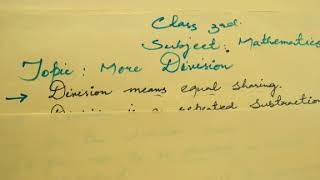 Class 3rd.
Subject: Mathematics
Topic: More Division
→ Division means equal sharing.
Division is a repeated Subtraction